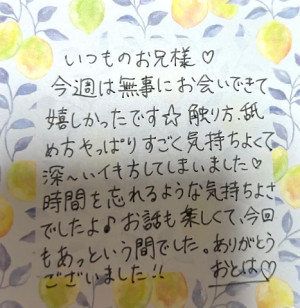 いつものお兄様♡
今週は無事にお会いできて
嬉しかったです☆触り方、舐
め方やっぱりすごく気持ちよくて、
深〜いイキ方してしまいました♡
時間を忘れるような気持ちよさ
でしたよ♪お話も楽しくて、今回
もあっという間でした。ありがとう
ございました!! おとは♡